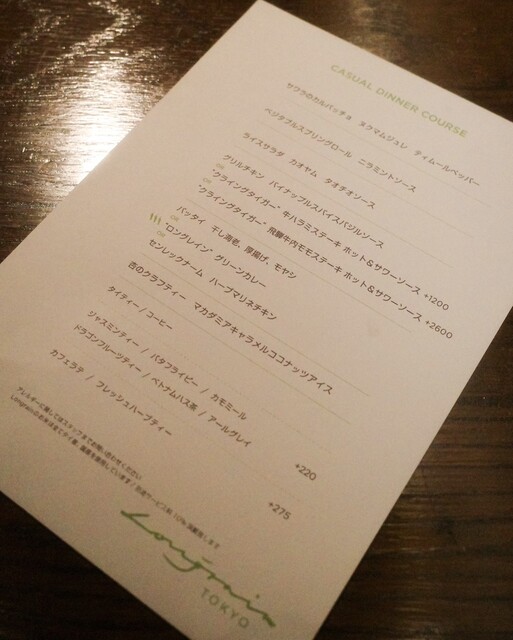 CASUAL DINNER COURSE
サワラのカルパッチョ ヌクマムジュレ ティムールペッパー
ベジタブルスプリングロール ニラミントソース
ライスサラダ カオヤム タオチオソース
グリルチキン パイナップルスパイスバジルソース
OR
"クライングタイガー" 牛ハラミステーキ ホット＆サワーソース +1200
OR
"クライングタイガー" 飛騨牛内モモステーキ ホット＆サワーソース +2600
パッタイ 干し海老、厚揚げ、モヤシ
OR
"ロングレイン" グリーンカレー
OR
センレックナーム ハーブマリネチキン
杏のクラフティー マカダミアキャラメルココナッツアイス
タイティー / コーヒー
ジャスミンティー / バタフライピー / カモミール
ドラゴンフルーツティー / ベトナムハス茶 / アールグレイ +220
カフェラテ / フレッシュハーブティー +275
アレルギーに関してはスタッフまでお問い合わせください
Longrainのお米は全てタイ産、国産を使用しています / 別途サービス料 10% 頂戴致します
Longrain
TOKYO